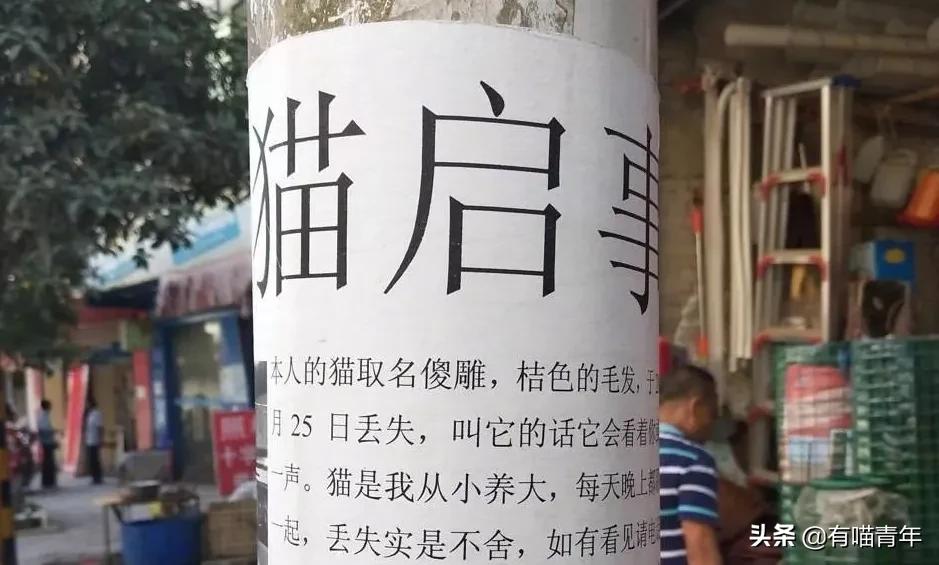 猫启事
本人的猫取名傻雕，桔色的毛发，于
月 25 日丢失，叫它的话它会看着你
一声。猫是我从小养大，每天晚上都
一起，丢失实是不舍，如有看见请电
头条 @有喵青年